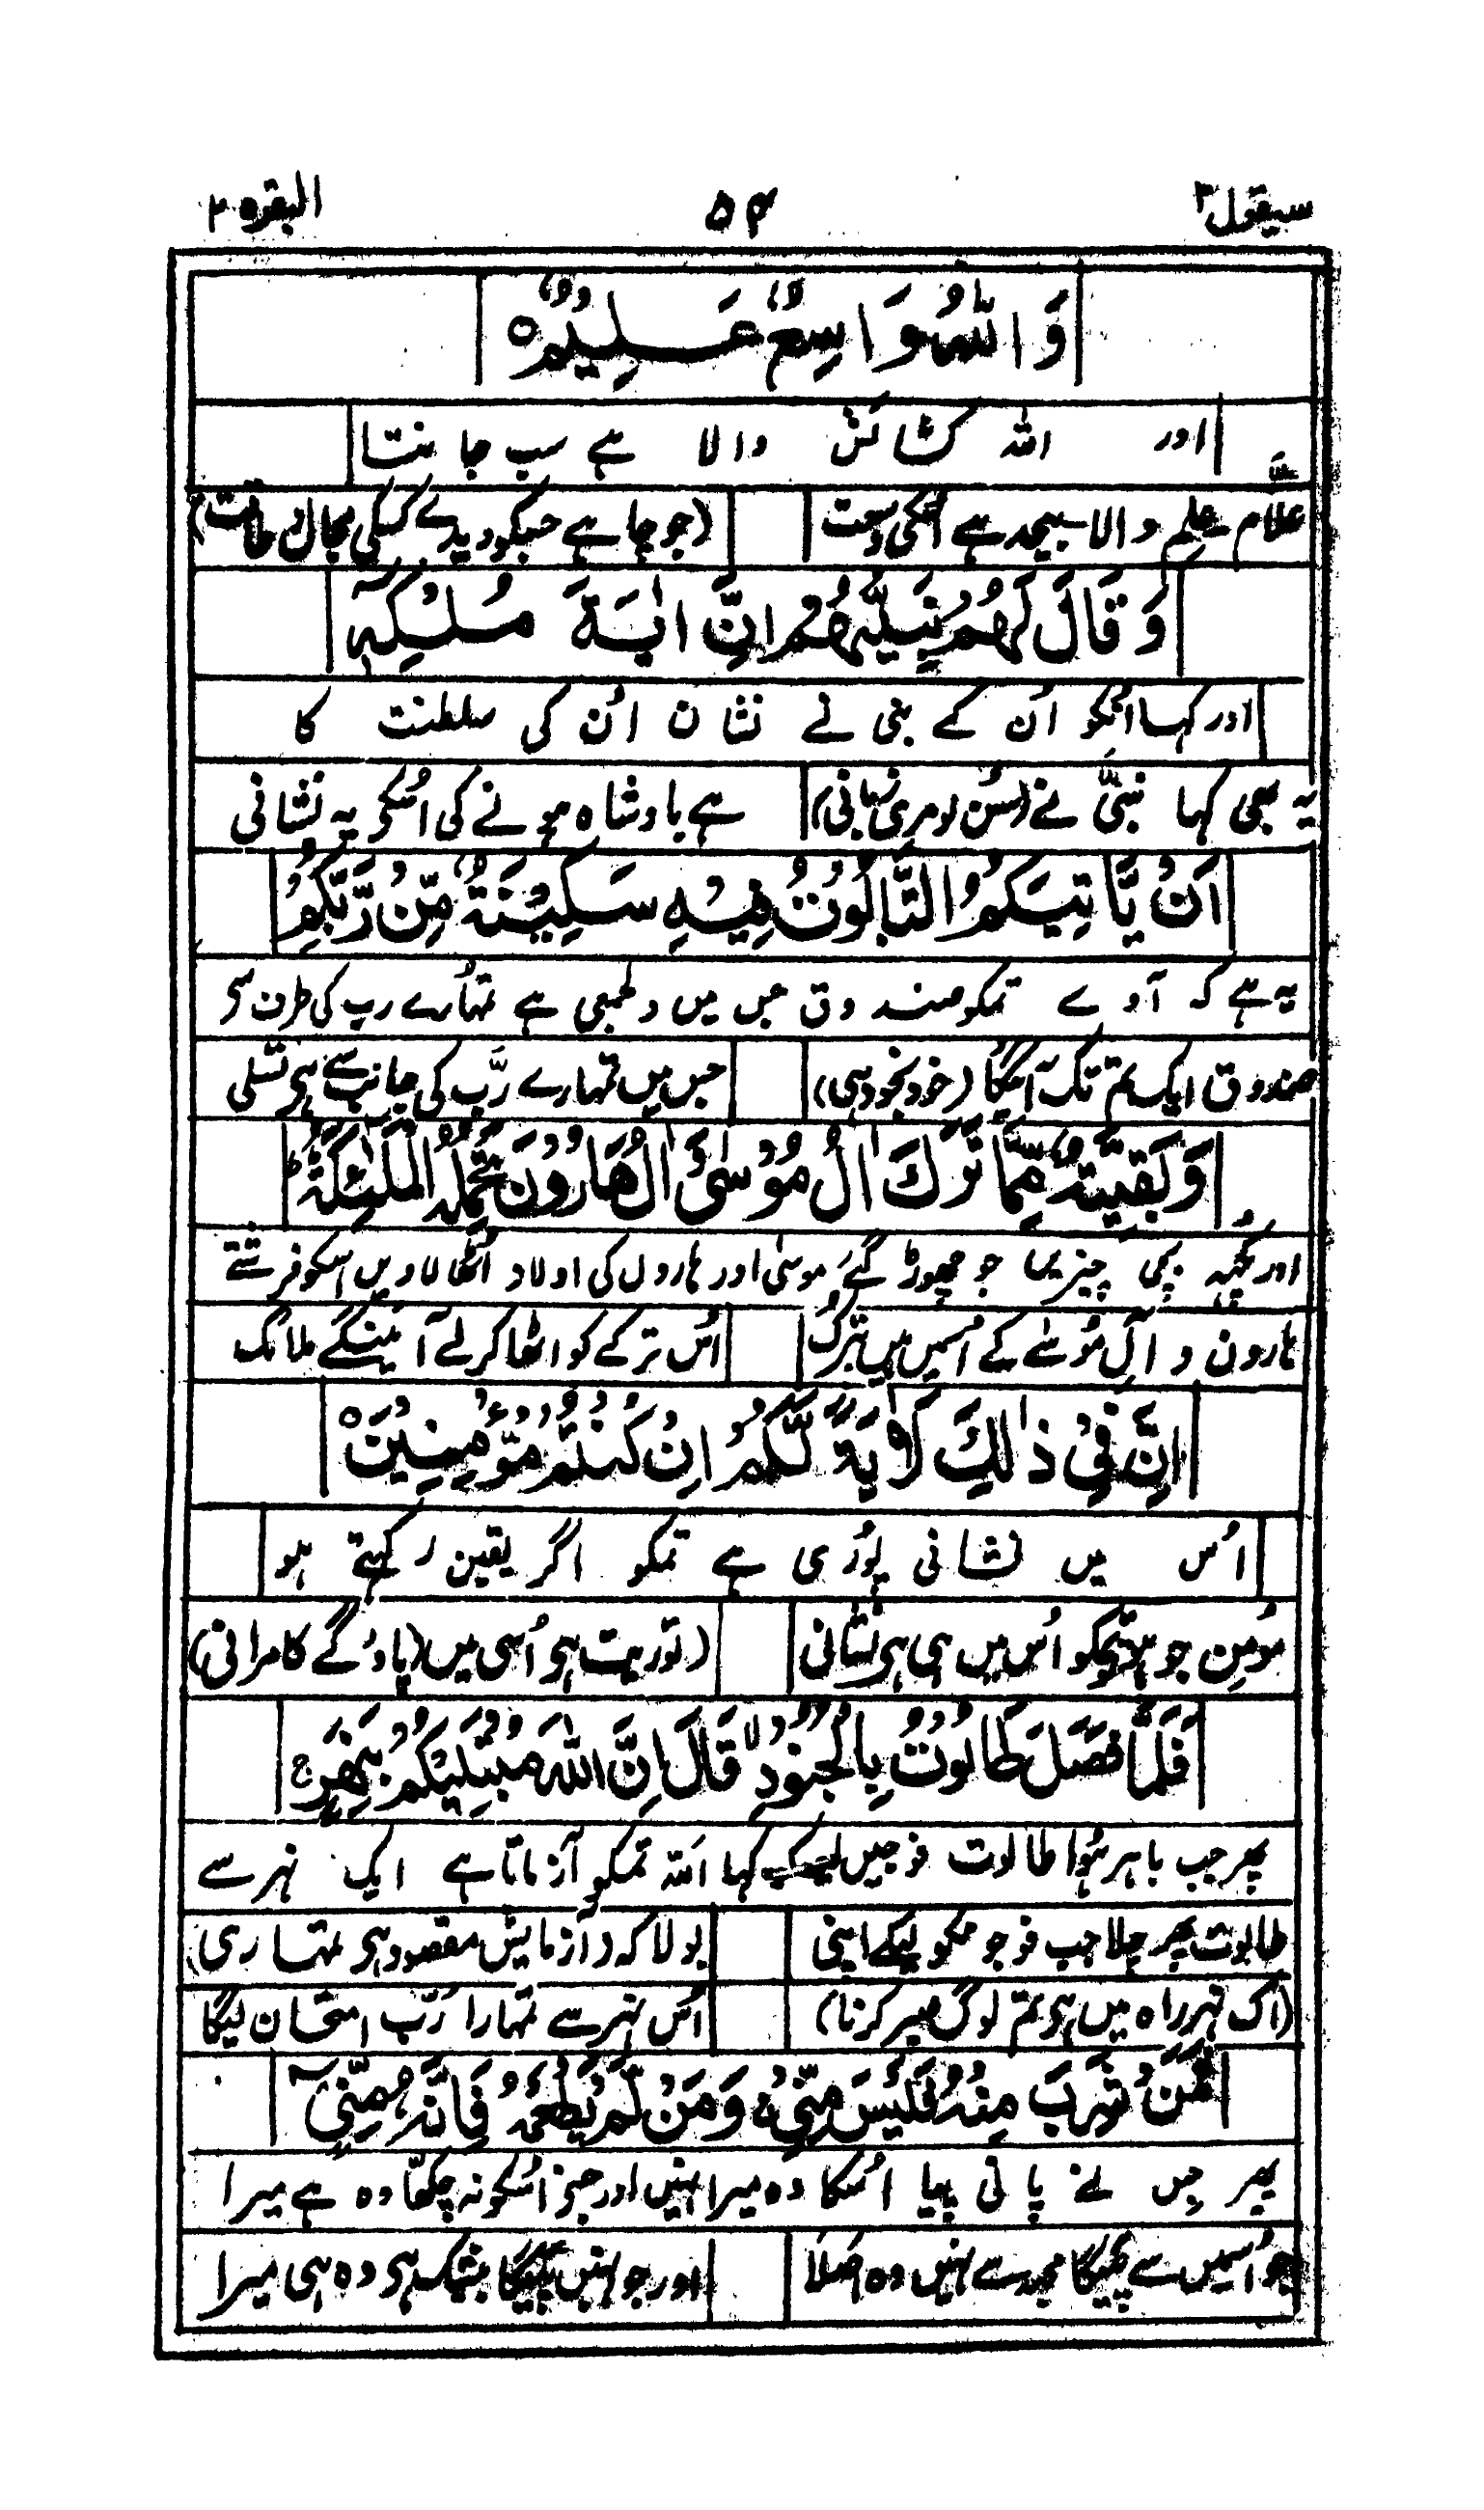 سیقول ۲ ۵۴ البقرہ ۲
وَاللّٰهُ وَاسِعٌ عَلِيْمٌ ه
اور اللہ کشائش والا ہے سب جانتا
علّام علم والا بیحد ہے اسکی وسعت (جو چاہے جسکو دیدے کسکی مجال طاقت)
وَ قَالَ لَهُمْ نَبِيُّهُمْ اِنَّ اٰيَةَ مُلْكِهٖ
اور کہا انکو اُن کے نبی نے نشان اُن کی سلطنت کا
یہ بھی کہا نبیؑ نے (سُن لو مری زبانی) ہے بادشاہ ہونے کی اُسکی یہ نشانی
اَنْ يَّاْتِيَكُمُ التَّابُوْتُ فِيْهِ سَكِيْنَةٌ مِّنْ رَّبِّكُمْ
یہ ہے کہ آوے تمکو صندوق جس میں دلجمعی ہے تمہارے رب کی طرف سی
صندوق ایک تم تک آئیگا (خود بخود ہی) جس میں تمہارے رَبّ کی جانب سے ہی تسلی
وَ بَقِيَّةٌ مِّمَّا تَرَكَ اٰلُ مُوْسٰى وَ اٰلُ هَارُوْنَ تَحْمِلُهُ الْمَلٰٓئِكَةُ ط
اور کچہہ بچی چیزیں جو چھوڑ گئے موسیٰ اور ہارون کی اولاد اُٹھا لاویں اسکو فرشتے
ہارون و آلِ مُوسٰے کے اسمیں ہیں تبرک اُس ترکے کو اٹھا کر لے آئینگے ملائک
اِنَّ فِيْ ذٰلِكَ لَاٰيَةً لَّكُمْ اِنْ كُنْتُمْ مُّؤْمِنِيْنَ ه
اُس میں نشانی پُوری ہے تمکو اگر یقین رکہتے ہو
مُومِن جو ہو تو تمکو اُس میں ہی ہی نشانی (توریت ہی اُسی میں (پاؤ گے کامرانی)
فَلَمَّا فَصَلَ طَالُوْتُ بِالْجُنُوْدِ لا قَالَ اِنَّ اللّٰهَ مُبْتَلِيْكُمْ بِنَهَرٍ ج
پھر جب باہر ہُوا طالوت فوجیں لیکر کہا اللہ تمکو آزماتا ہے ایک نہر سے
طالوت پھر چلا جب فوجو نکو لیکے اپنی بولا کہ (آزمایش مقصود ہی تمہاری)
(اک نہر راہ میں ہی تم لوگ صبر کرنا) اُس نہر سے تمہارا رَبّ امتحان لیگا
فَمَنْ شَرِبَ مِنْهُ فَلَيْسَ مِنِّيْ ج وَ مَنْ لَّمْ يَطْعَمْهُ فَاِنَّهٗ مِنِّيْٓ
پھر جس نے پانی پیا اُسکا وہ میرا نہیں اور جسنے اُسکو نہ چکھّا وہ ہے میرا
جو اُسمیں سے پئیگا مجھ سے نہیں وہ اصلاً اور جو نہیں پئیگا بیشک ہی وہ ہی میرا